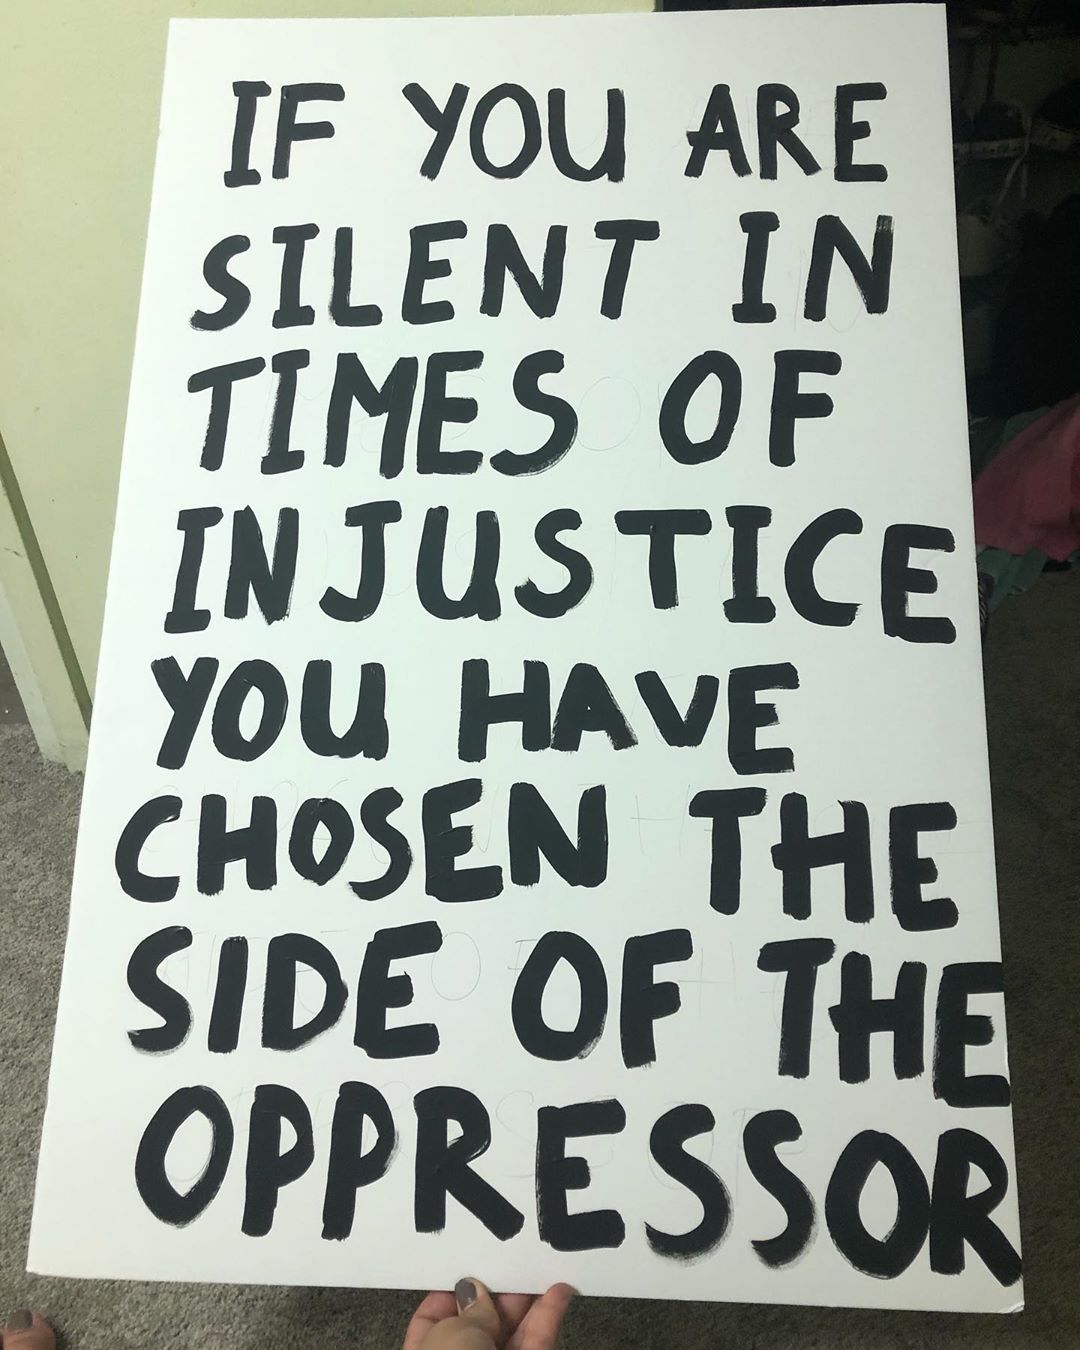 IF YOU ARE
SILENT IN
TIMES OF
INJUSTICE
YOU HAVE
CHOSEN THE
SIDE OF THE
OPPRESSOR